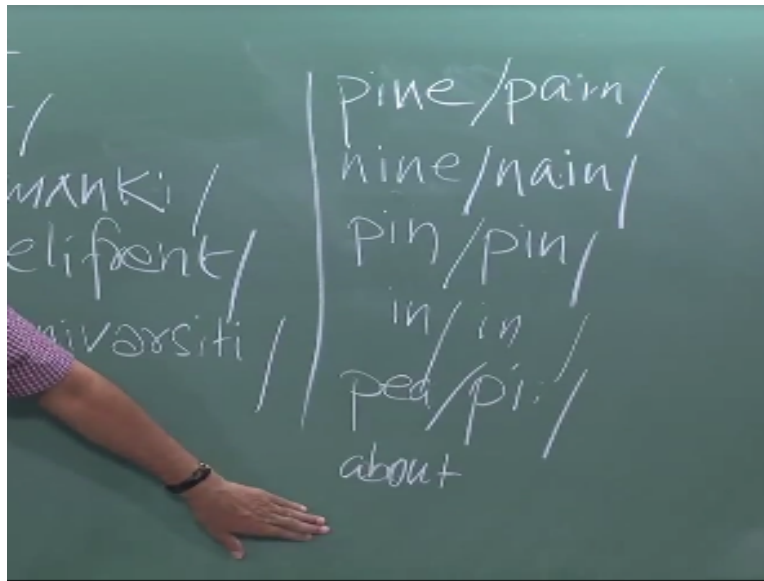 /
mʌnki/
elifənt/
nivərsiti/
pine/pain/
nine/nain/
pin/pin/
in/in/
pea/pi:/
about